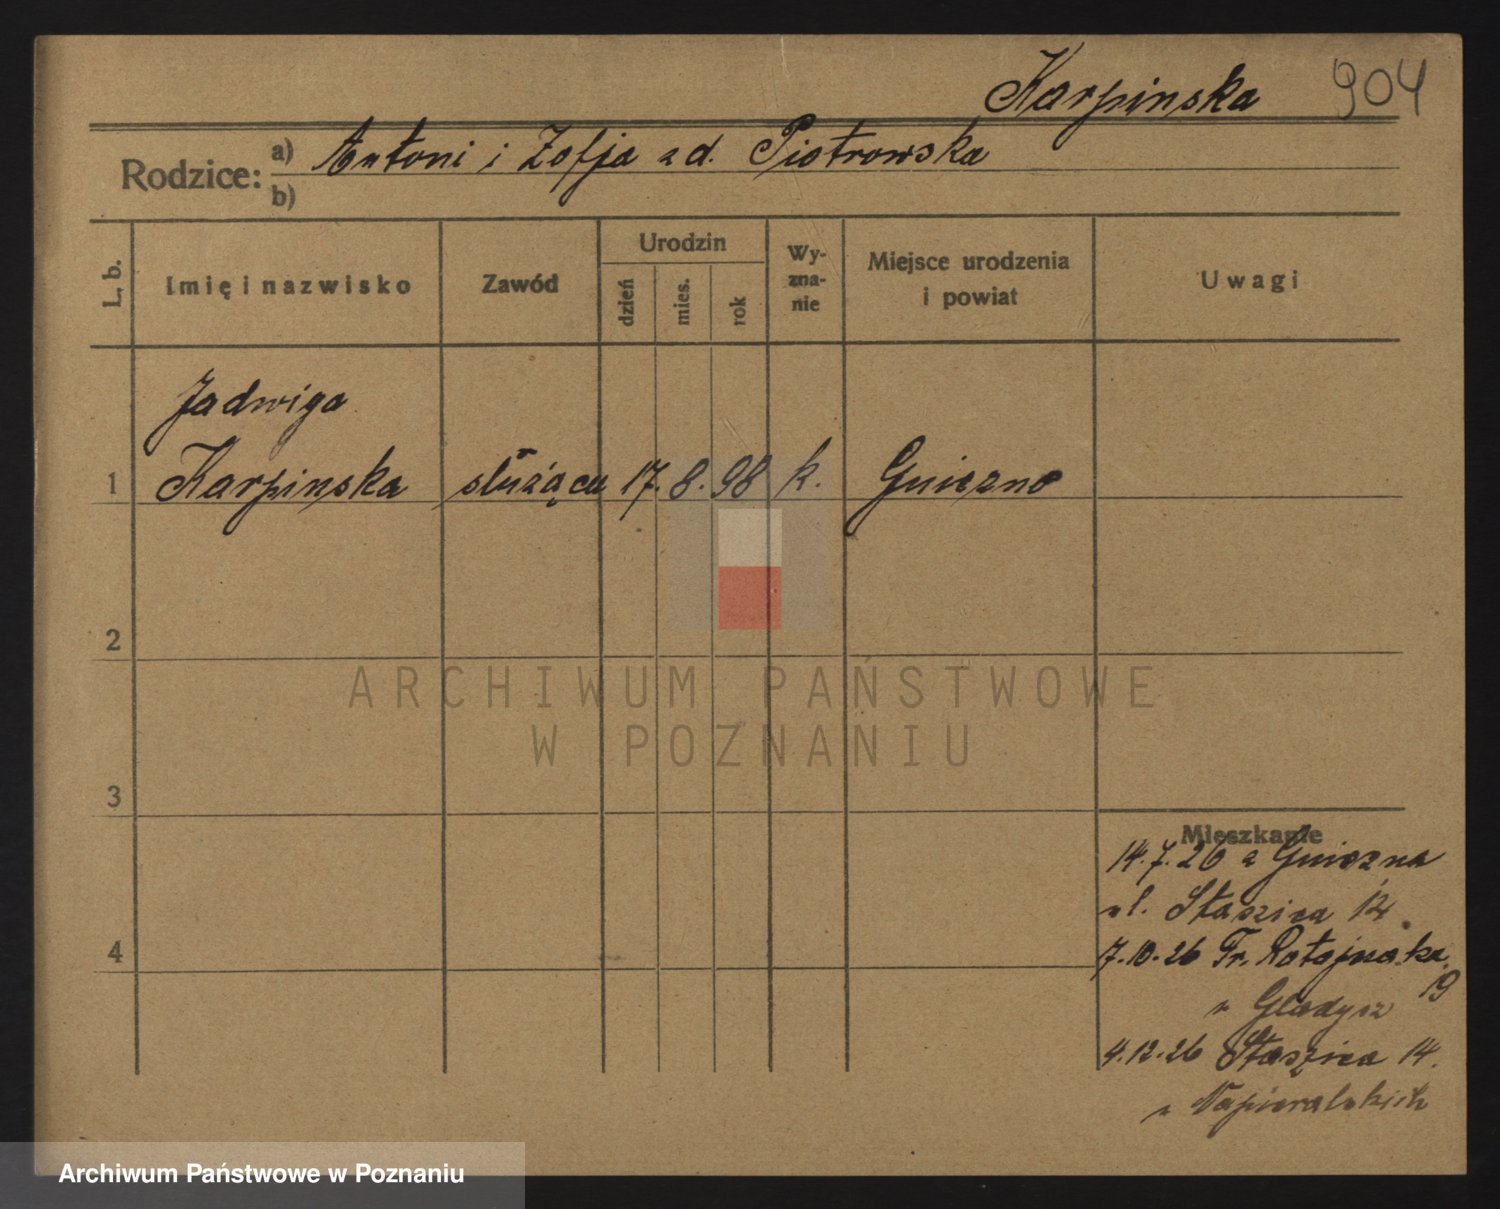 Karpinska 904
Rodzice: a) Antoni i Zofja zd. Piotrowska
b)
L. b. Imię i nazwisko Zawód Urodzin dzień mies. rok Wy-zna-nie Miejsce urodzenia i powiat Uwagi
Jadwiga
1 Karpinska służąca 17. 8. 98 k. Gniezno
2
ARCHIWUM PAŃSTWOWE
W POZNANIU
3
Mieszkanie
14.7.26 z Gniezna
ul. Staszica 12
4
7.10.26 Fr. Ratajczaka
19
u Gładysz
4.12.26 Staszica 14.
u Napieralskich
Archiwum Państwowe w Poznaniu